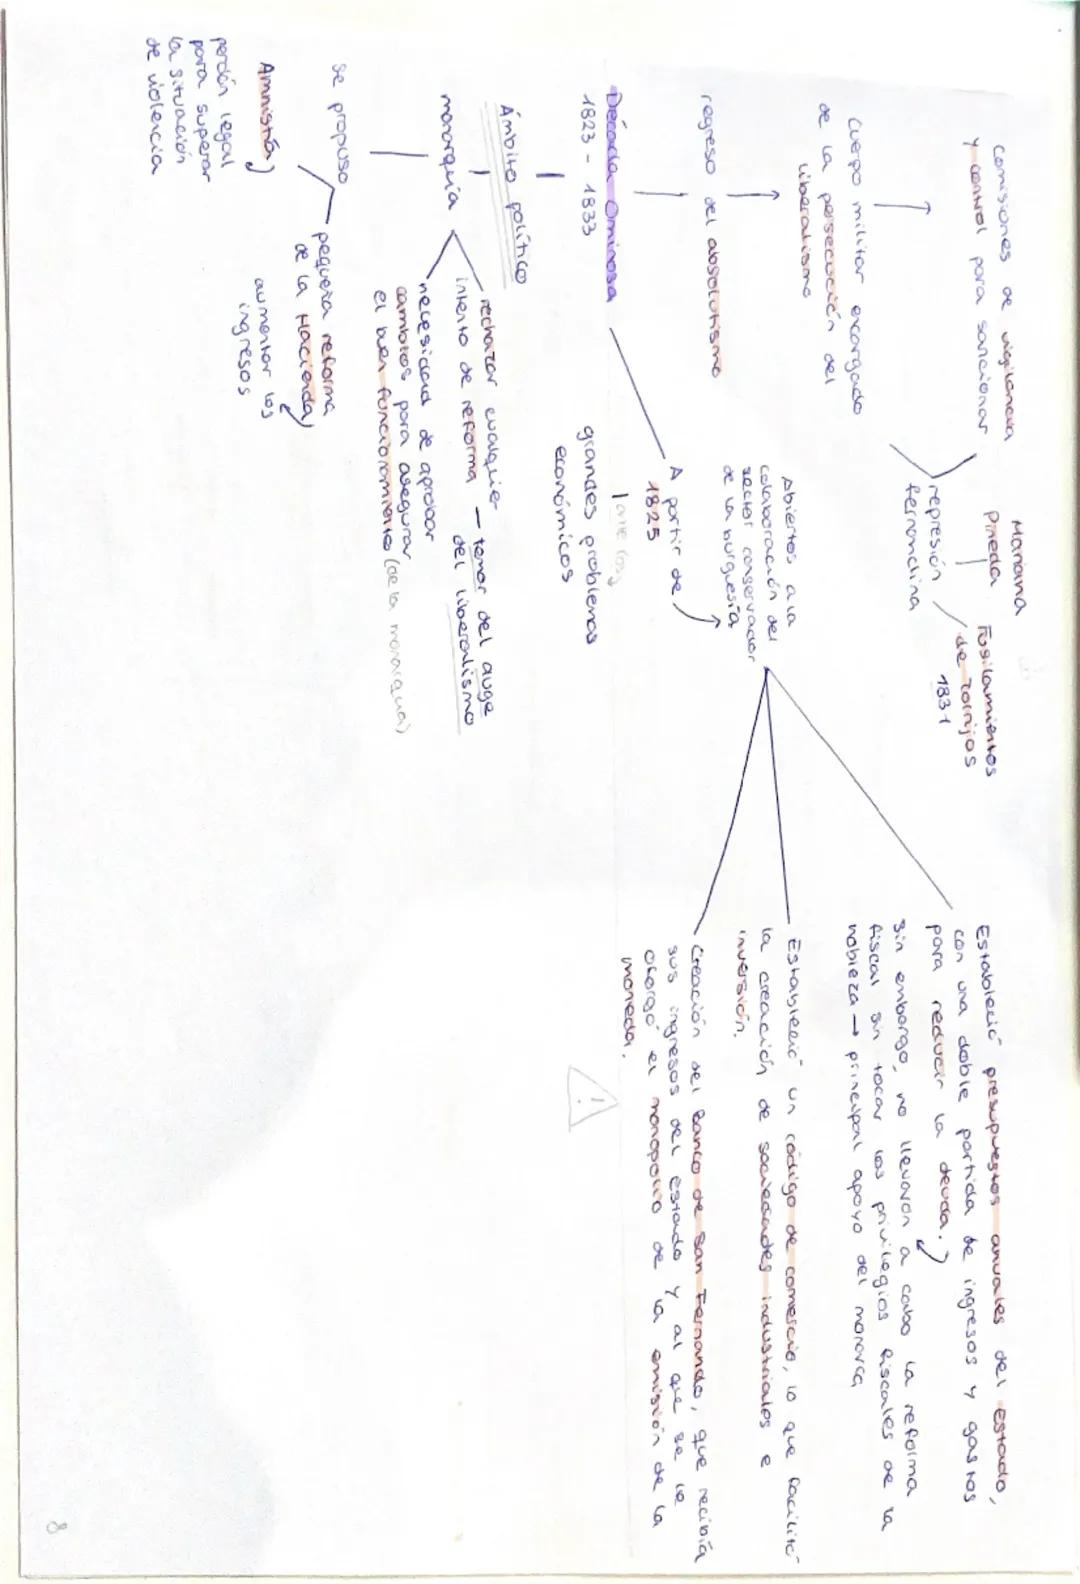 Comisiones de vigilancia
y control para sancionar
cuerpo militar encargado
de la persecución del
liberalismo
regreso del absolutismo
Década Ominosa
1823 - 1833
Ámbito político
monarquía
rechazar cualquier
intento de reforma - temor del auge
del liberalismo
necesidad de aprobar
cambios para asegurar
el buen funcionamiento (de la monarquía)
se propuso
pequeña reforma
de la Hacienda
aumentar los
ingresos
Amnistía
perdón legal
para superar
la situación
de violencia
Mariana
Pineda
represión
fernandina
Fusilamientos
de Torrijos
1831
Abiertos a la
colaboración del
sector conservador
de la burguesía
A partir de
1825
ante los
grandes problemas
económicos
Estableció presupuestos anuales del estado,
con una doble partida de ingresos y gastos
para reducir la deuda.
Sin embargo, no llevaron a cabo la reforma
fiscal sin tocar los privilegios fiscales de la
nobleza → principal apoyo del monarca
Estableció un código de comercio, lo que facilitó
la creación de sociedades industriales e
inversión.
Creación del Banco de San Fernando, que recibía
sus ingresos del estado y al que se le
otorgó el monopolio de la emisión de la
moneda.
!
8